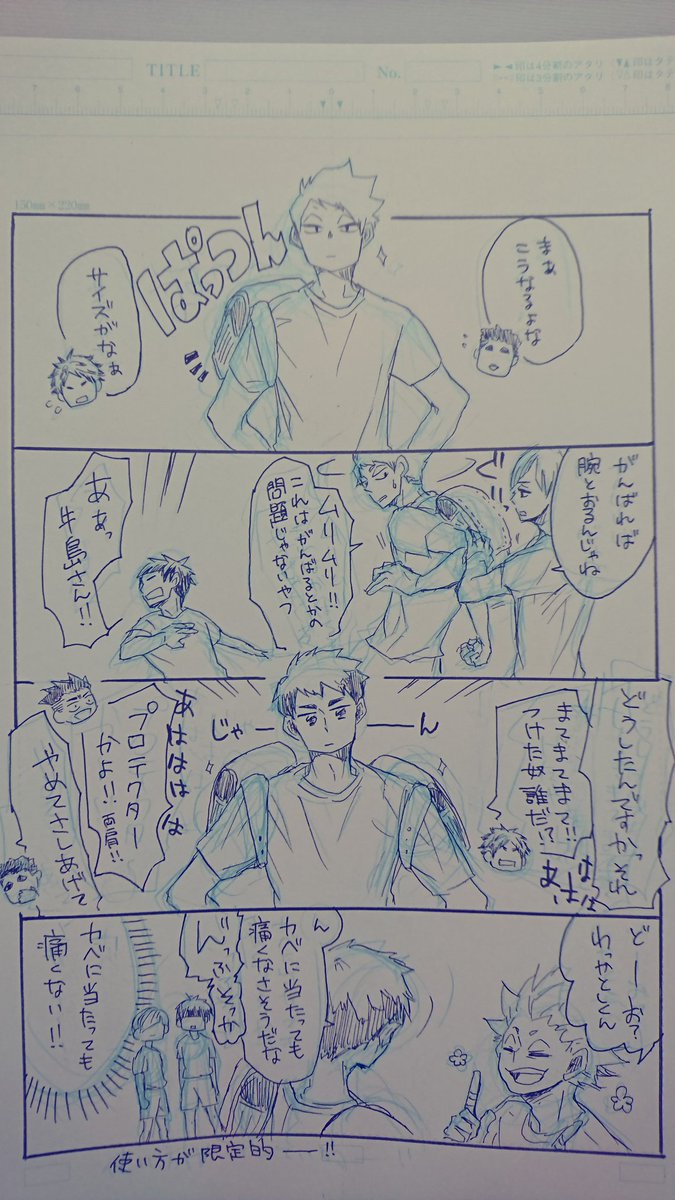 TITLE
No.
►◄印は4分割のアタリ
印は3分割のアタリ
150mm×220mm
まぁ
こうなるよな
ぱっつん
サイズがなぁ
がんばれば
腕とおるんじゃね
ムリムリ!!
これはがんばるとかの
問題じゃないやつ
ああっ
牛島さん!!
どうしたんですかっそれ
まてまてまて!!
つけた奴誰だ!?
あはは
じゃーーーん
あはははは
プロテクター
かよ!!両肩!!
やめてさしあげて
どーお?
わかとしくん
ん
カベに当たっても
痛くなさそうだな
カベに当たっても
痛くない!!
使い方が限定的ー!!